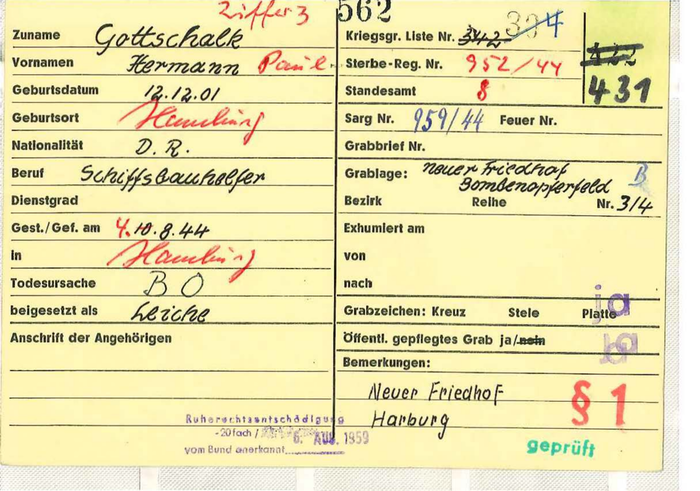 Ziffer 3
562
Zuname Gottschalk
Vornamen Hermann Paul
Geburtsdatum 12.12.01
Geburtsort Hamburg
Nationalität D. R.
Beruf Schiffsbauhelfer
Dienstgrad
Gest./Gef. am 4. 10.8.44
in Hamburg
Todesursache B O
beigesetzt als Leiche
Anschrift der Angehörigen
Ruherechtsentschädigung
-20fach /
6. AUG. 1959
vom Bund anerkannt
Kriegsgr. Liste Nr. 342 334
431
Sterbe-Reg. Nr. 952/44
Standesamt 8
Sarg Nr. 959/44 Feuer Nr.
Grabbrief Nr.
Grablage: Neuer Friedhof B
Bombenopferfeld
Bezirk Reihe Nr. 314
Exhumiert am
von
nach
ja
Grabzeichen: Kreuz Stele Platte
Öffentl. gepflegtes Grab ja/nein ja
Bemerkungen:
Neuer Friedhof
Harburg
§ 1
geprüft